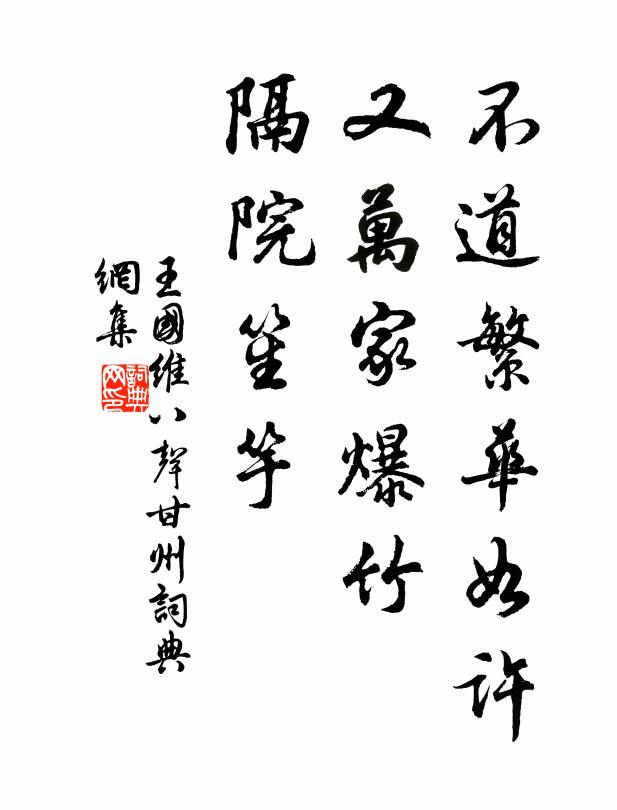 不道繁華如許
又萬家爆竹
隔院笙竽
王國維八聲甘州詞典
網集
詞典
网印